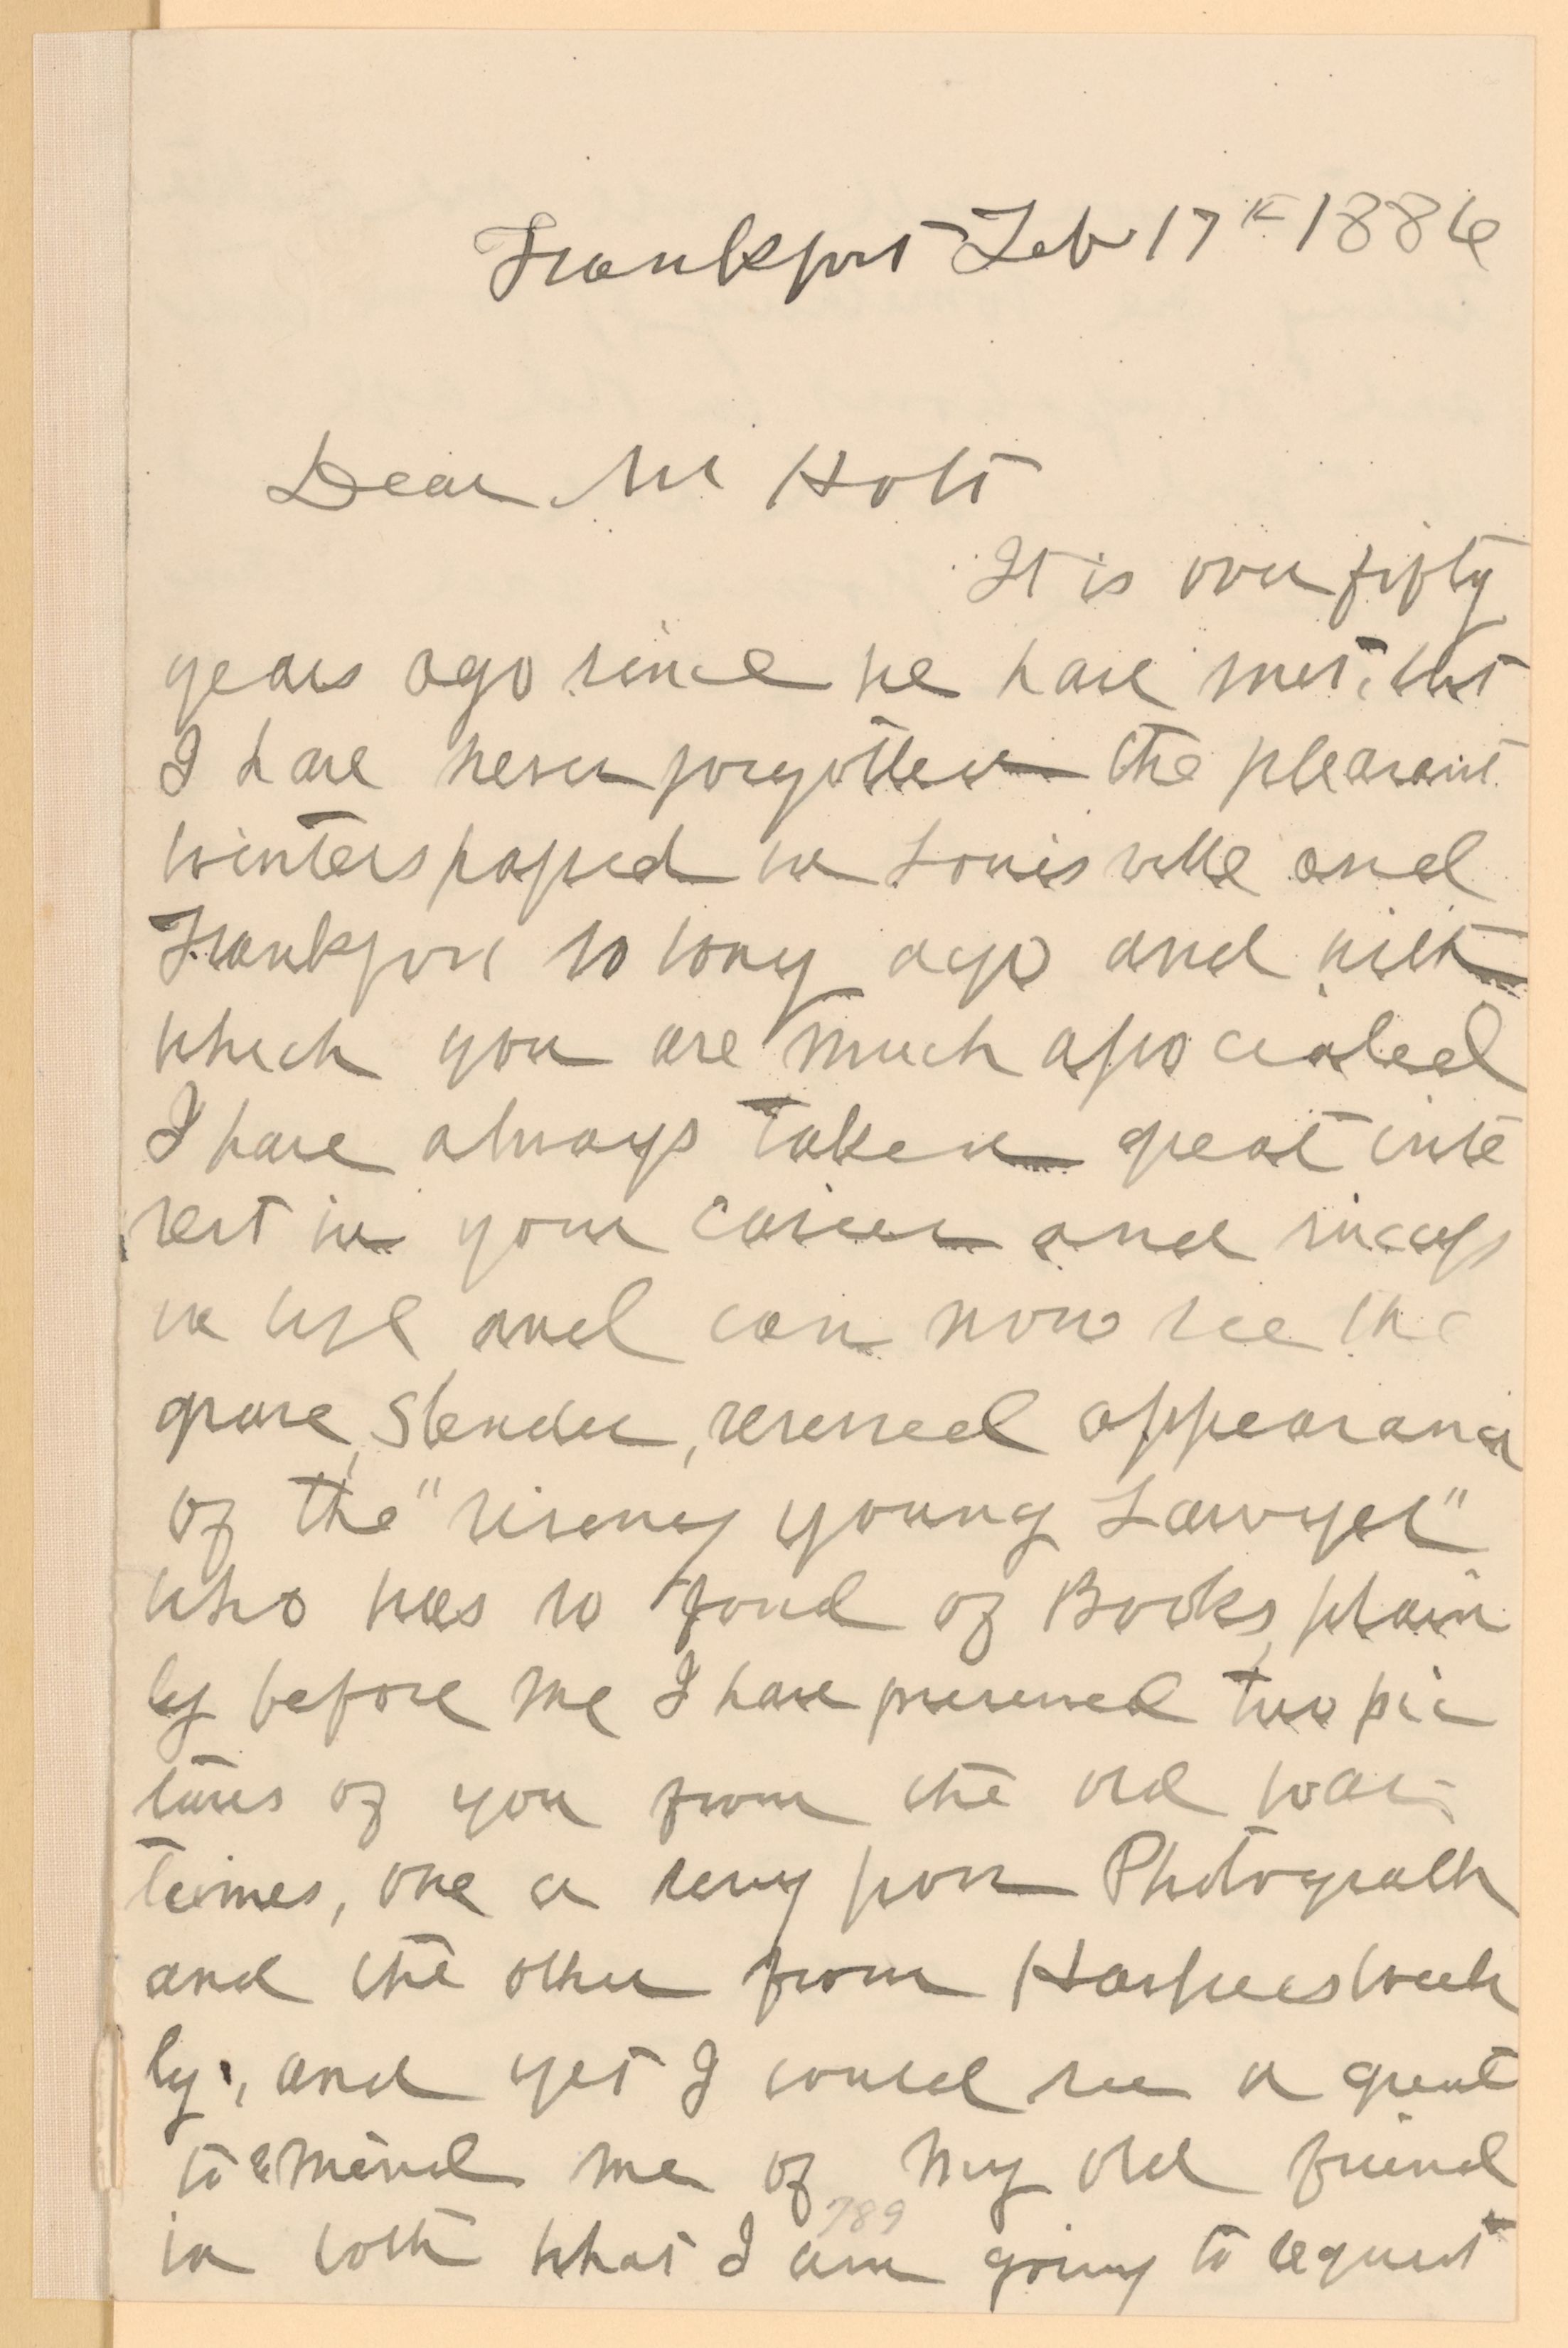 Frankfort Feb 17th 1886
Dear Mr Holt
It is over fifty
years ago since we have met, but
I have never forgotten the pleasant
winters passed in Louisville and
Frankfort so long ago and with
which you are much associated
I have always taken great inte
rest in your career and success
in life and can now see the
grave, slender, reserved appearance
of the "rising young Lawyer"
who was so fond of Books, plain
ly before me I have preserved two pic
tures of you from the old war
times, one a very poor Photograph
and the other from Harpers Week
ly, and yet I could see a great
to remind me of my old friend
in both what I am going to request
789